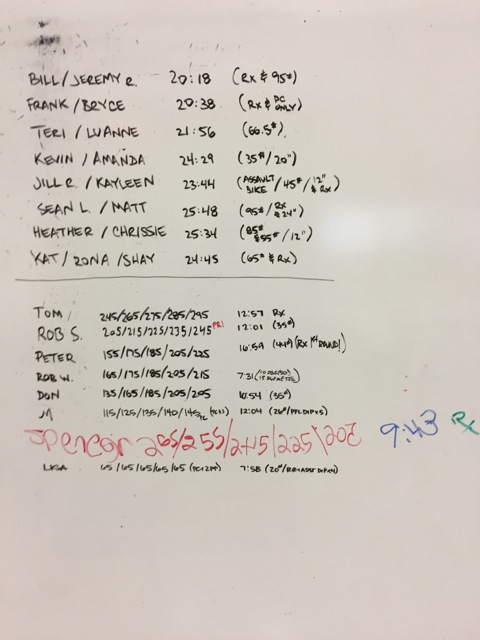 BILL / JEREMY R. 20:18 (RX & 95#)
FRANK / BRYCE 20:38 (RX & PC ONLY)
TERI / LUANNE 21:56 (66.5#)
KEVIN / AMANDA 24:29 (35#/20")
JILL R. / KAYLEEN 23:44 (ASSAULT BIKE / 45# / 12" & RX)
SEAN L. / MATT 25:48 (95#/RX & 24")
HEATHER / CHRISSIE 25:34 (85# & 55# / 12")
KAT / ZONA / SHAY 24:45 (65# & RX)
TOM 245/265/275/285/295 12:57 RX
ROB S. 205/215/225/235/245 PR! 12:01 (35#)
PETER 155/175/185/205/225 16:59 (44#) (RX 1st ROUND!)
ROB W. 165/175/185/205/215 7:31
DON 135/165/185/205/205 10:54 (35#)
JM 115/125/135/140/145 12:04 (26#
Spencer 265/255/245/225/205 9:43 Rx
LISA 65/65/65/65/65 7:58 (20#